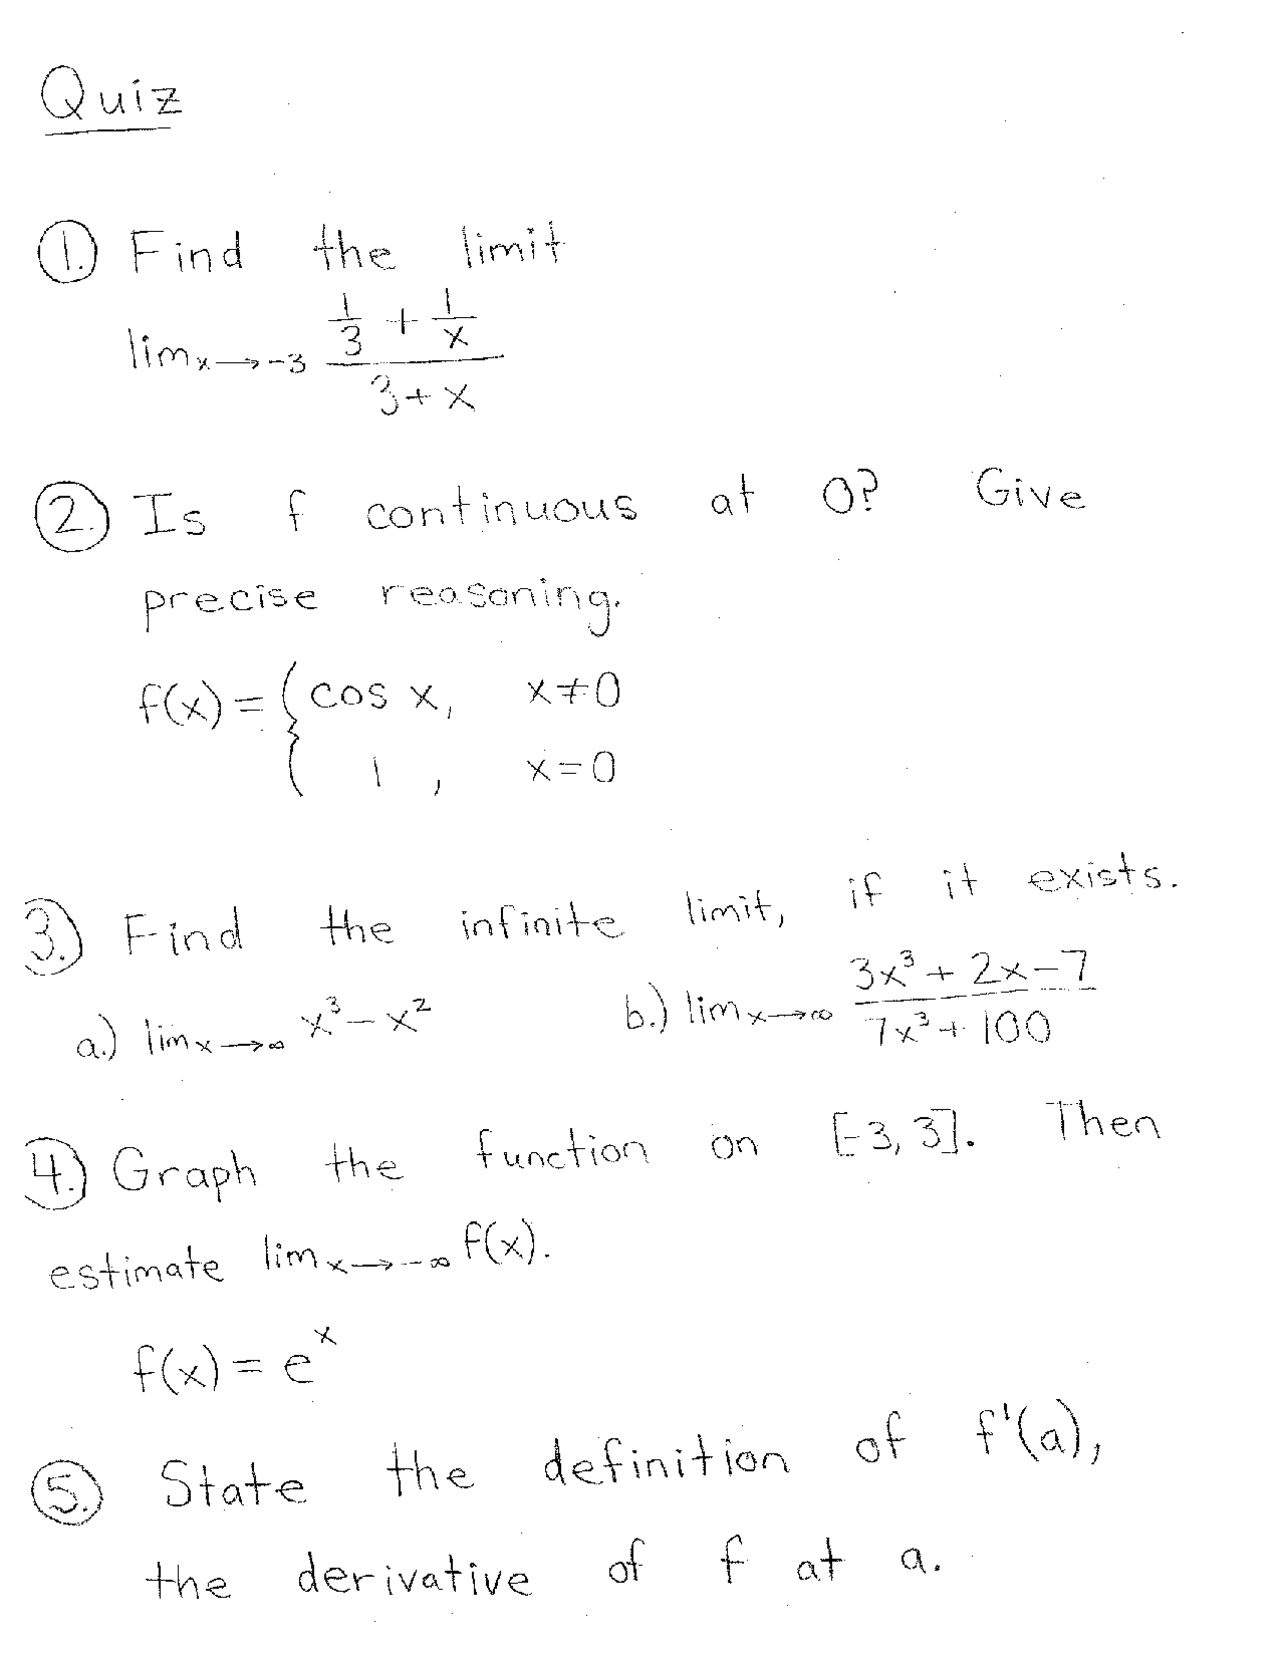 Quiz
1. Find the limit
lim x→-3 (1/3 + 1/x)/(3+x)
2. Is f continuous at 0? Give
precise reasoning.
f(x) = { cos x, x≠0
1, x=0
3. Find the infinite limit, if it exists.
a.) lim x→∞ x³-x² b.) lim x→∞ (3x³+2x-7)/(7x³+100)
4. Graph the function on [-3,3]. Then
estimate lim x→-∞ f(x).
f(x) = eˣ
5. State the definition of f'(a),
the derivative of f at a.